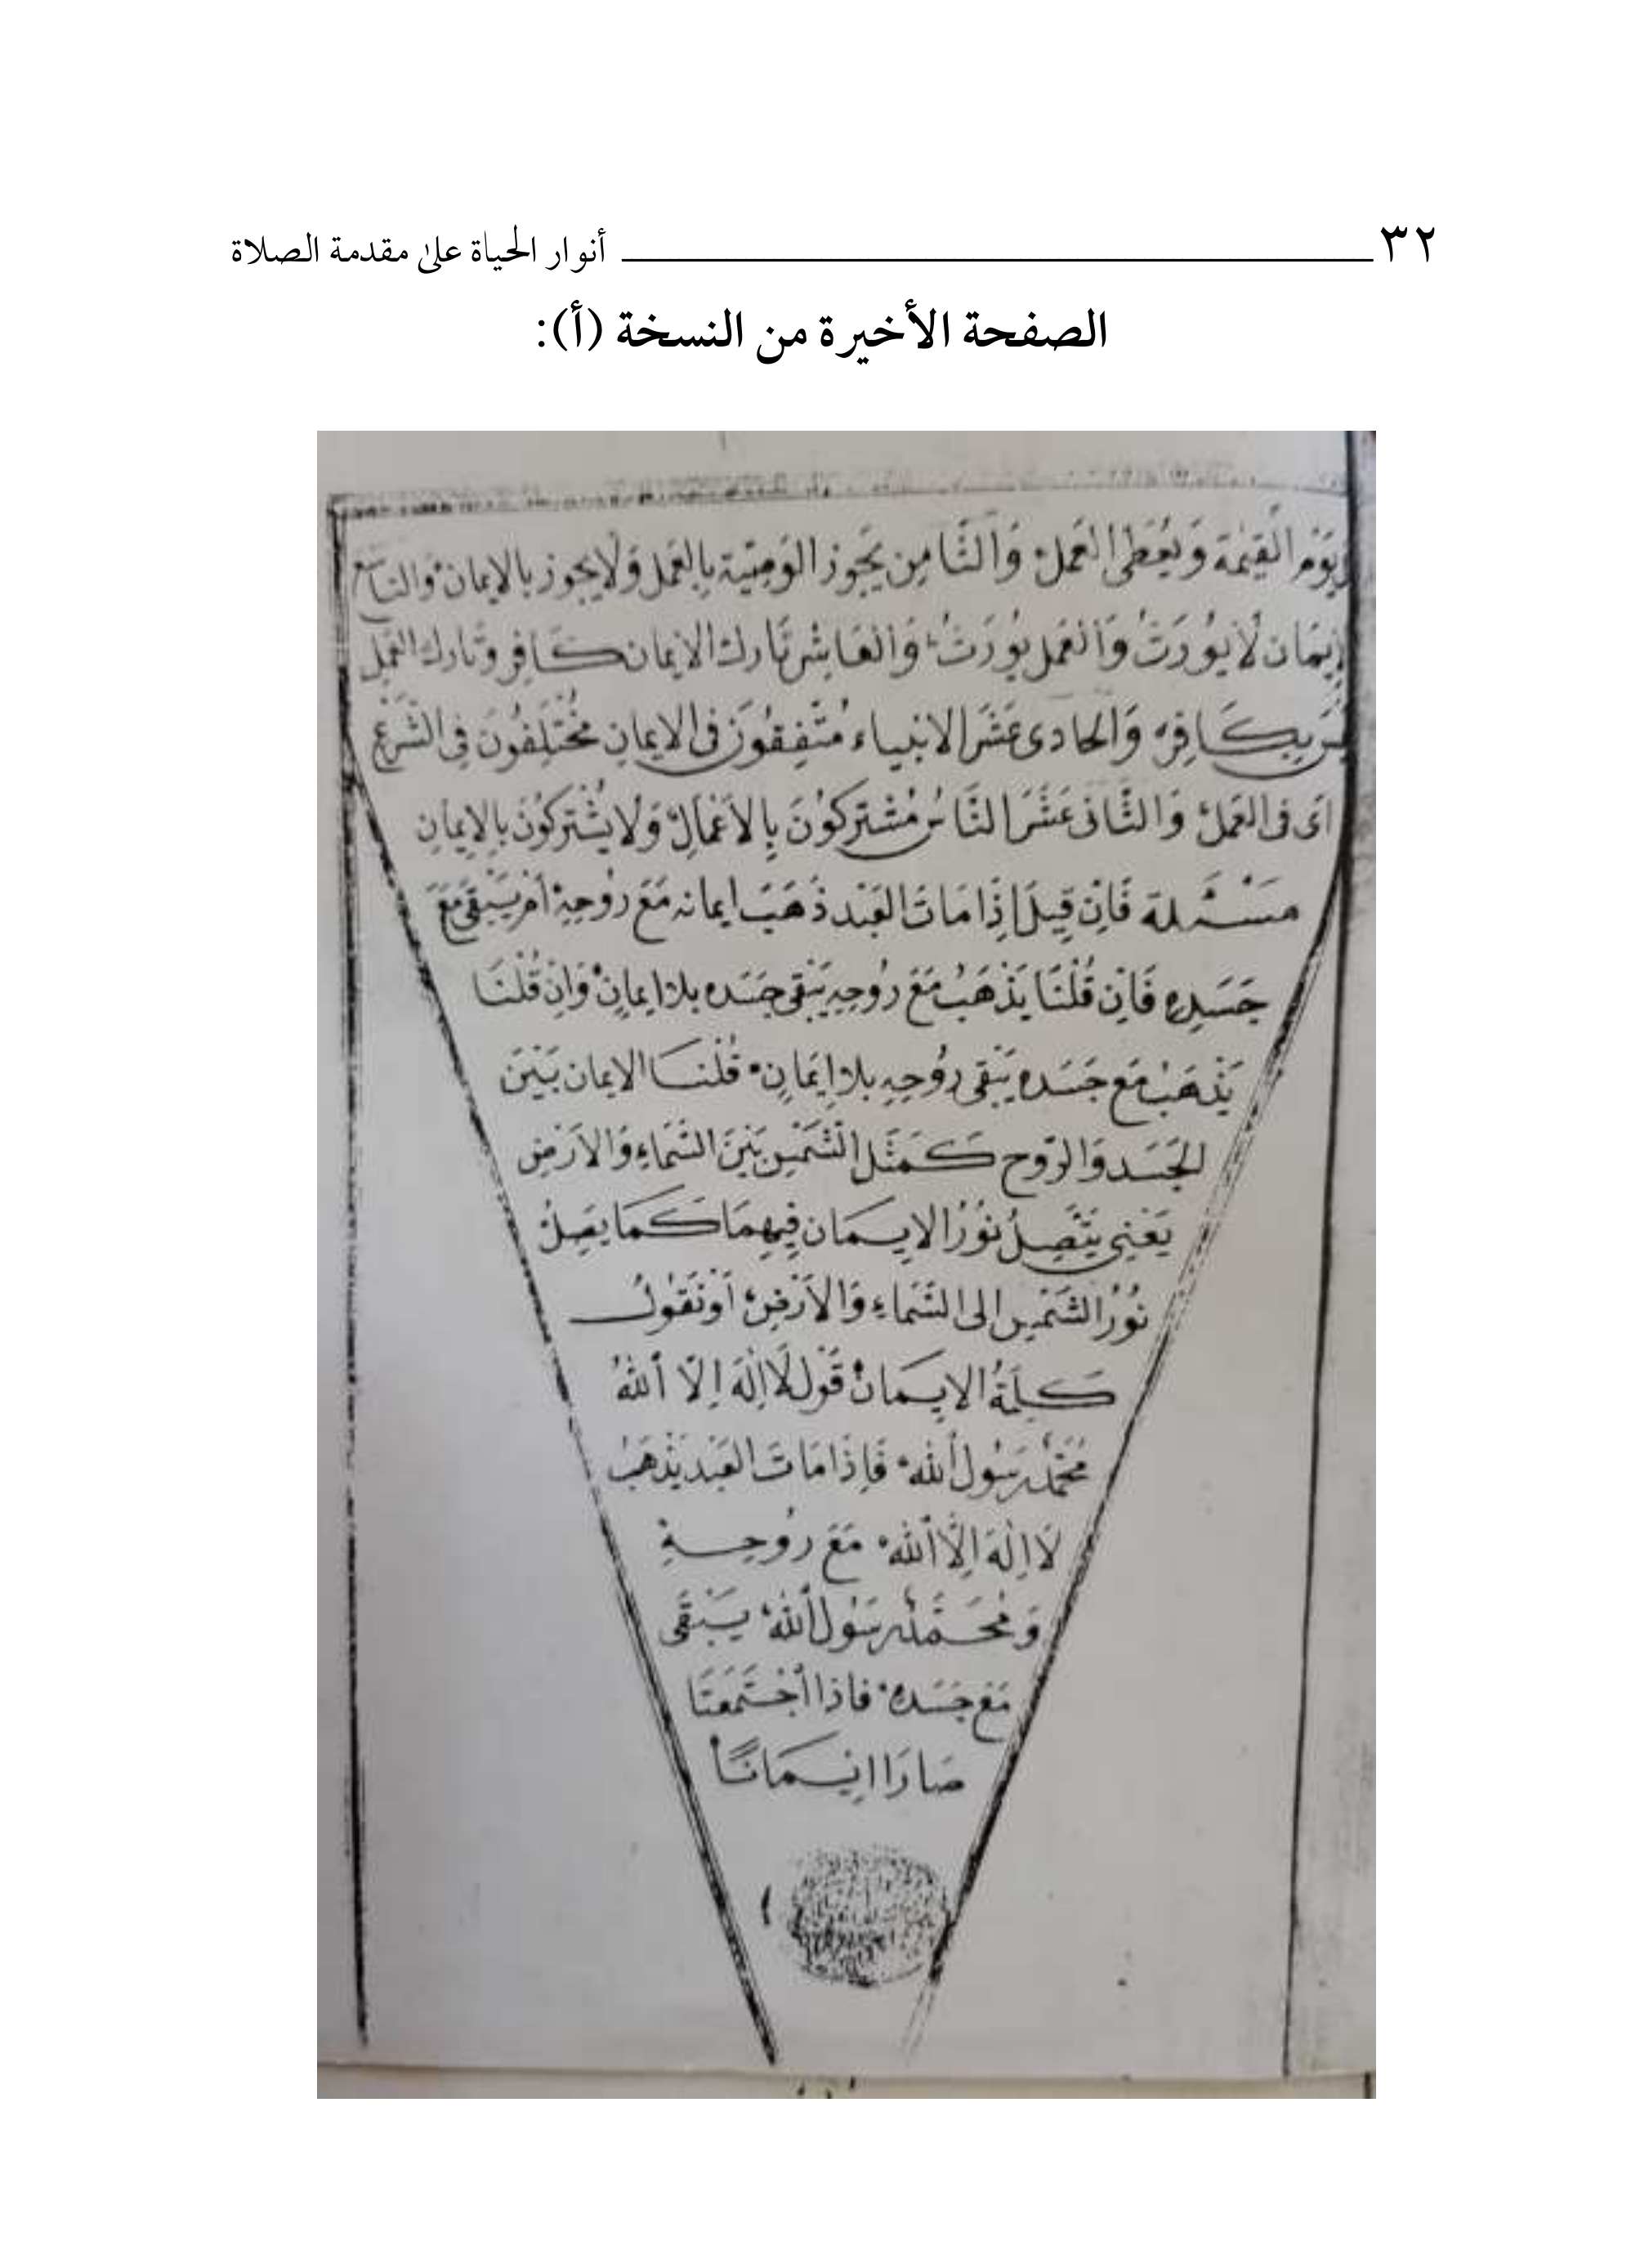 ٣٢ أنوار الحياة على مقدمة الصلاة
الصفحة الأخيرة من النسخة (أ):
يَوْمِ الْقِيٰمَة وَيُعْطَى العَمَل وَالثَّامِن يَجُوز الوَصِيَّة بِالعَمَل وَلَا يجوز بالايمان والتاسع
الايمَان لَا يُورَثُ وَالعَمل يُورَثُ وَالعَاشر تَارك الايمان كَافِر وتَارك العَمل
لَيْسَ بِكَافِر وَالحادى عَشَرَ الانبياء مُتَّفِقُونَ فى الايمانِ مُخْتَلِفُونَ فِى الشَّرْعِ
اَى فى العَمَل وَالثَّانى عَشَرَ النَّاسُ مُشْتَرِكُونَ بِالاَعْمَالِ وَلَا يَشْتَرِكُونَ بِالاِيمَانِ
مَسْئَلة فَاِن قِيلَ اِذَا مَاتَ العَبْد ذَهَبَ ايمانه مَعَ رُوحِهِ اَمْ يَبْقَى مَعَ
جَسَدِهِ فَاِن قُلْنَا يَذْهَبُ مَعَ رُوحِهِ يَبْقَى جَسَده بلا ايمانٍ وَاِنْ قُلْنَا
يَذْهَبُ مَع جَسَدِه يَبْقَى رُوحِهِ بلا اِيمَانٍ قُلْنَا الايمان بَيْنَ
الجَسَد وَالرّوح كَمَثَل الشَّمْسِ بَيْنَ السَّمَاءِ وَالاَرْضِ
يَعْنِى يَتَّصِلُ نُوْرُ الايمَان فِيهِمَا كَمَا يصِلُ
نُوْرُ الشَّمْسِ الى السَّمَاءِ وَالاَرْضِ اَو نَقُولُ
كَلِمَةُ الايمَانْ قَوْل لَا اِلٰهَ اِلّا اَللّٰهُ
مُحَمَّدْ رَسُول اَللّٰه فَاِذَا مَاتَ العَبْد يَذْهَبُ
لَا اِلٰهَ اِلَّا اَللّٰه مَعَ رُوحِهِ
وَمُحَمَّدْ رَسُول اَللّٰه يَبْقَى
مَعَ جَسَدِهِ فاذا اجْتَمَعَتَا
صَارَا اِيمَانًا